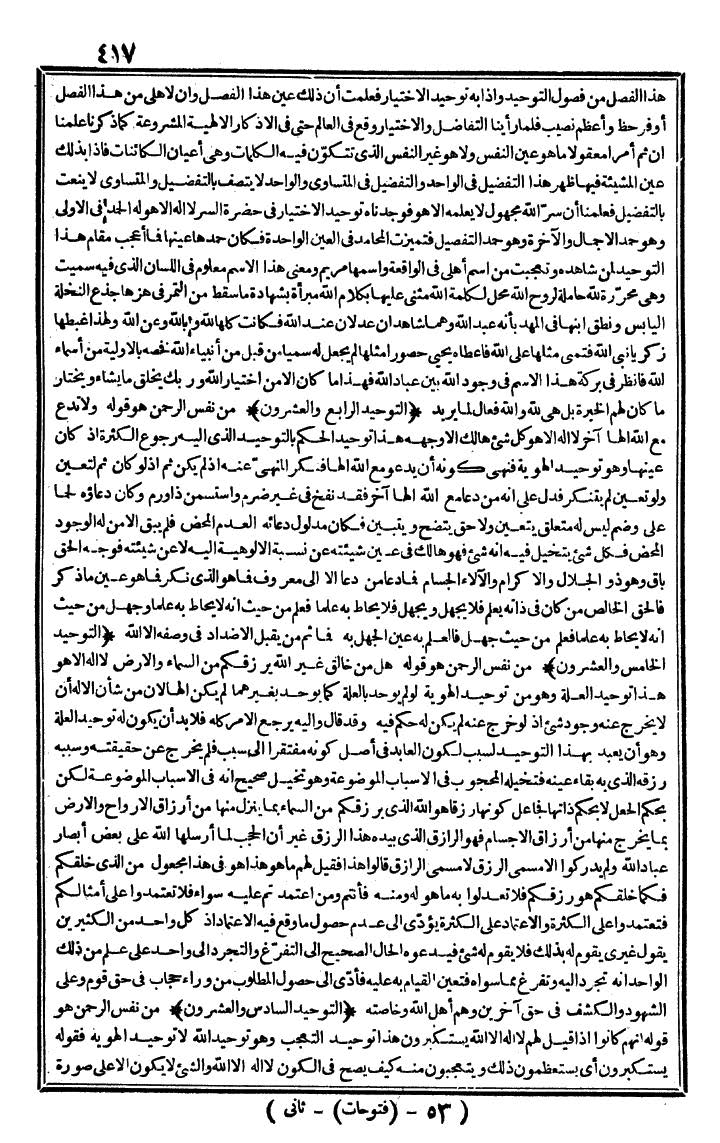 ٤١٧
هذا الفصل من فصول التوحيد واذا به توحيد الاختيار فعلمت أن ذلك عين هذا الفصل وان لاهلى من هذا الفصل
أوفر حظ وأعظم نصيب فلما رأينا التفاضل والاختيار وقع فى العالم حتى فى الاذكار الالهية المشروعة كما ذكرنا علمنا
ان ثم أمرا معقولا ما هو عين النفس ولا هو غير النفس الذى تتكوّن فيه الكلمات وهى أعيان الكائنات فاذا بذلك
عين المشيئة فبها ظهر هذا التفضيل فى الواحد والتفضيل فى المتساوى والواحد لا يتصف بالتفضيل والمتساوى لا ينعت
بالتفضيل فعلمنا أن سرّ الله مجهول لا يعلمه الا هو فوجدناه توحيد الاختيار فى حضرة السر لا اله الا هو له الحمد فى الاولى
وهو حمد الاجمال والآخرة وهو حمد التفصيل فتميزت المحامد فى العين الواحدة فكان حمدها عينها فما أعجب مقام هذا
التوحيد لمن شاهده وتعجبت من اسم أهلى فى الواقعة واسمها مريم ومعنى هذا الاسم معلوم فى اللسان الذى فيه سميت
وهى محرّرة لله حاملة لروح الله محل لكلمة الله مثنى عليها بكلام الله مبرأة بشهادة ما سقط من التمر فى هزها جذع النخلة
اليابس ونطق ابنها فى المهد بأنه عبد الله وهما شاهدان عدلان عند الله فكانت كلها لله وبالله وعن الله ولهذا غبطها
زكريا نبى الله فتمنى مثلها على الله فاعطاه يحيى حصورا مثلها لم يجعل له سميا من قبل من أنبياء الله نخصه بالاولية من أسماء
الله فانظر فى بركة هذا الاسم فى وجود الله بين عباد الله فهذا ما كان الا من اختيار الله وربك يخلق ما يشاء ويختار
ما كان لهم الخيرة بل هى لله والله فعال لما يريد ﴿التوحيد الرابع والعشرون﴾ من نفس الرحمن هو قوله ولا تدع
مع الله الها آخر لا اله الا هو كل شئ هالك الا وجهه هذا توحيد الحكم بالتوحيد الذى اليه رجوع الكثرة اذ كان
عينها وهو توحيد الهوية فنهى كونه أن يدعو مع الله الها فنكر المنهىّ عنه اذ لم يكن ثم اذ لو كان ثم لتعين
ولو تعين لم يتنكر فدل على انه من دعا مع الله الها آخر فقد نفخ فى غير ضرم واستسمن ذا ورم وكان دعاؤه لحما
على وضم ليس له متعلق يتعين ولا حق يتضح ويتبين فكان مدلول دعائه العدم المحض فلم يبق الا من له الوجود
المحض فكل شئ يتخيل فيه انه شئ فهو هالك فى عين شيئته عن نسبة الالوهية اليه لا عن شيئته فوجه الحق
باق وهو ذو الجلال والاكرام والآلاء الجسام فما دعا من دعا الا الى معروف فما هو الذى نكر فما هو عين ما ذكر
فالحق الخالص من كان فى ذاته يعلم فلا يجهل ويجهل فلا يحاط به علما فعلم من حيث انه لا يحاط به علما وجهل من حيث
انه لا يحاط به علما فعلم من حيث جهل فالعلم به عين الجهل به فما ثم من يقبل الاضداد فى وصفه الا الله ﴿التوحيد
الخامس والعشرون﴾ من نفس الرحمن هو قوله هل من خالق غير الله يرزقكم من السماء والارض لا اله الا هو
هذا توحيد العلة وهو من توحيد الهوية لو لم يوحد بالعلة كما يوحد بغيرهما لم يكن الها لان من شأن الاله أن
لا يخرج عنه وجود شئ اذ لو خرج عنه لم يكن له حكم فيه وقد قال واليه يرجع الامر كله فلا بد أن يكون له توحيد العلة
وهو أن يعبد بهذا التوحيد لسبب لكون العابد فى أصل كونه مفتقرا الى سبب فلم يخرج عن حقيقته وسببه
رزقه الذى به بقاء عينه فتخيله المحجوب فى الاسباب الموضوعة وهو تخيل صحيح انه فى الاسباب الموضوعة لكن
بحكم الجعل لا بحكم ذاتها فجاعل كونها رزقا هو الله الذى يرزقكم من السماء بما ينزل منها من أرزاق الارواح والارض
بما يخرج منها من أرزاق الاجسام فهو الرازق الذى بيده هذا الرزق غير أن الحجب لما أرسلها الله على بعض أبصار
عباد الله ولم يدركوا الا مسمى الرزق لا مسمى الرازق قالوا هذا فقيل لهم ما هو هذا هو فى هذا مجعول من الذى خلقكم
فكما خلقكم هو رزقكم فلا تعدلوا به ما هو له ومنه فأنتم ومن اعتمدتم عليه سواء فلا تعتمدوا على أمثالكم
فتعتمدوا على الكثرة والاعتماد على الكثرة يؤدّى الى عدم حصول ما وقع فيه الاعتماد اذ كل واحد من الكثيرين
يقول غيرى يقوم له بذلك فلا يقوم له شئ فيدعوه الحال الصحيح الى التفرّغ والتجرد الى واحد على علم من ذلك
الواحد انه تجرد اليه وتفرغ مما سواه فتعين القيام به عليه فأدّى الى حصول المطلوب من وراء حجاب فى حق قوم وعلى
الشهود والكشف فى حق آخرين وهم أهل الله وخاصته ﴿التوحيد السادس والعشرون﴾ من نفس الرحمن هو
قوله انهم كانوا اذا قيل لهم لا اله الا الله يستكبرون هذا توحيد التعجب وهو توحيد الله لا توحيد الهوية فقوله
يستكبرون أى يستعظمون ذلك ويتعجبون منه كيف يصح فى الكون لا اله الا الله والشئ لا يكون الا على صورة
( ٥٣ - (فتوحات) - ثانى )